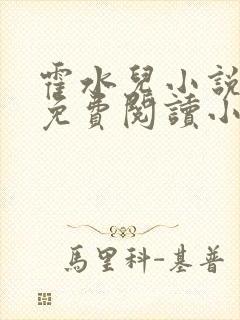 霍水兒小說
免費閱讀小
馬里科-基普